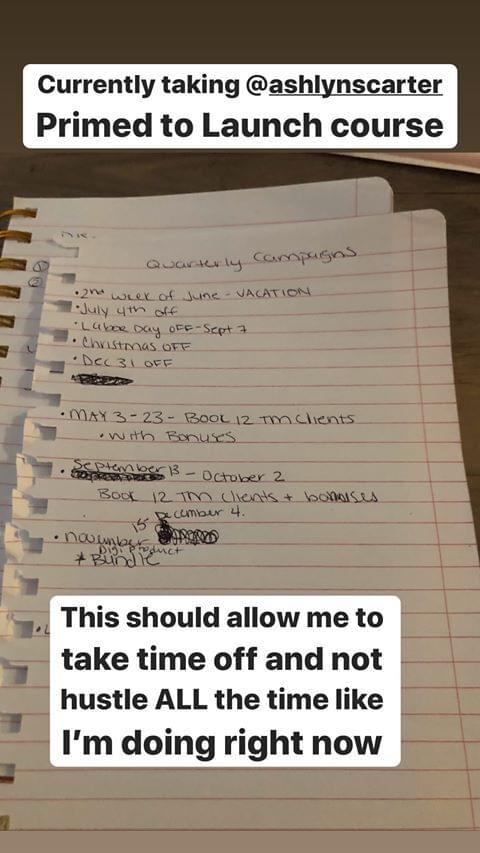 Currently taking @ashlynscarter
Primed to Launch course
Quarterly Campaigns
①
②
• 2nd week of June - VACATION
• July 4th off
• Labor Day OFF - Sept 7
• Christmas OFF
• Dec 31 OFF
• MAY 3 - 23 - BOOK 12 TM Clients
• with Bonuses
• September 13 - October 2
Book 12 TM Clients + bonuses
• november 15 December 4.
Digi Product
* Bundle
This should allow me to
take time off and not
hustle ALL the time like
I'm doing right now